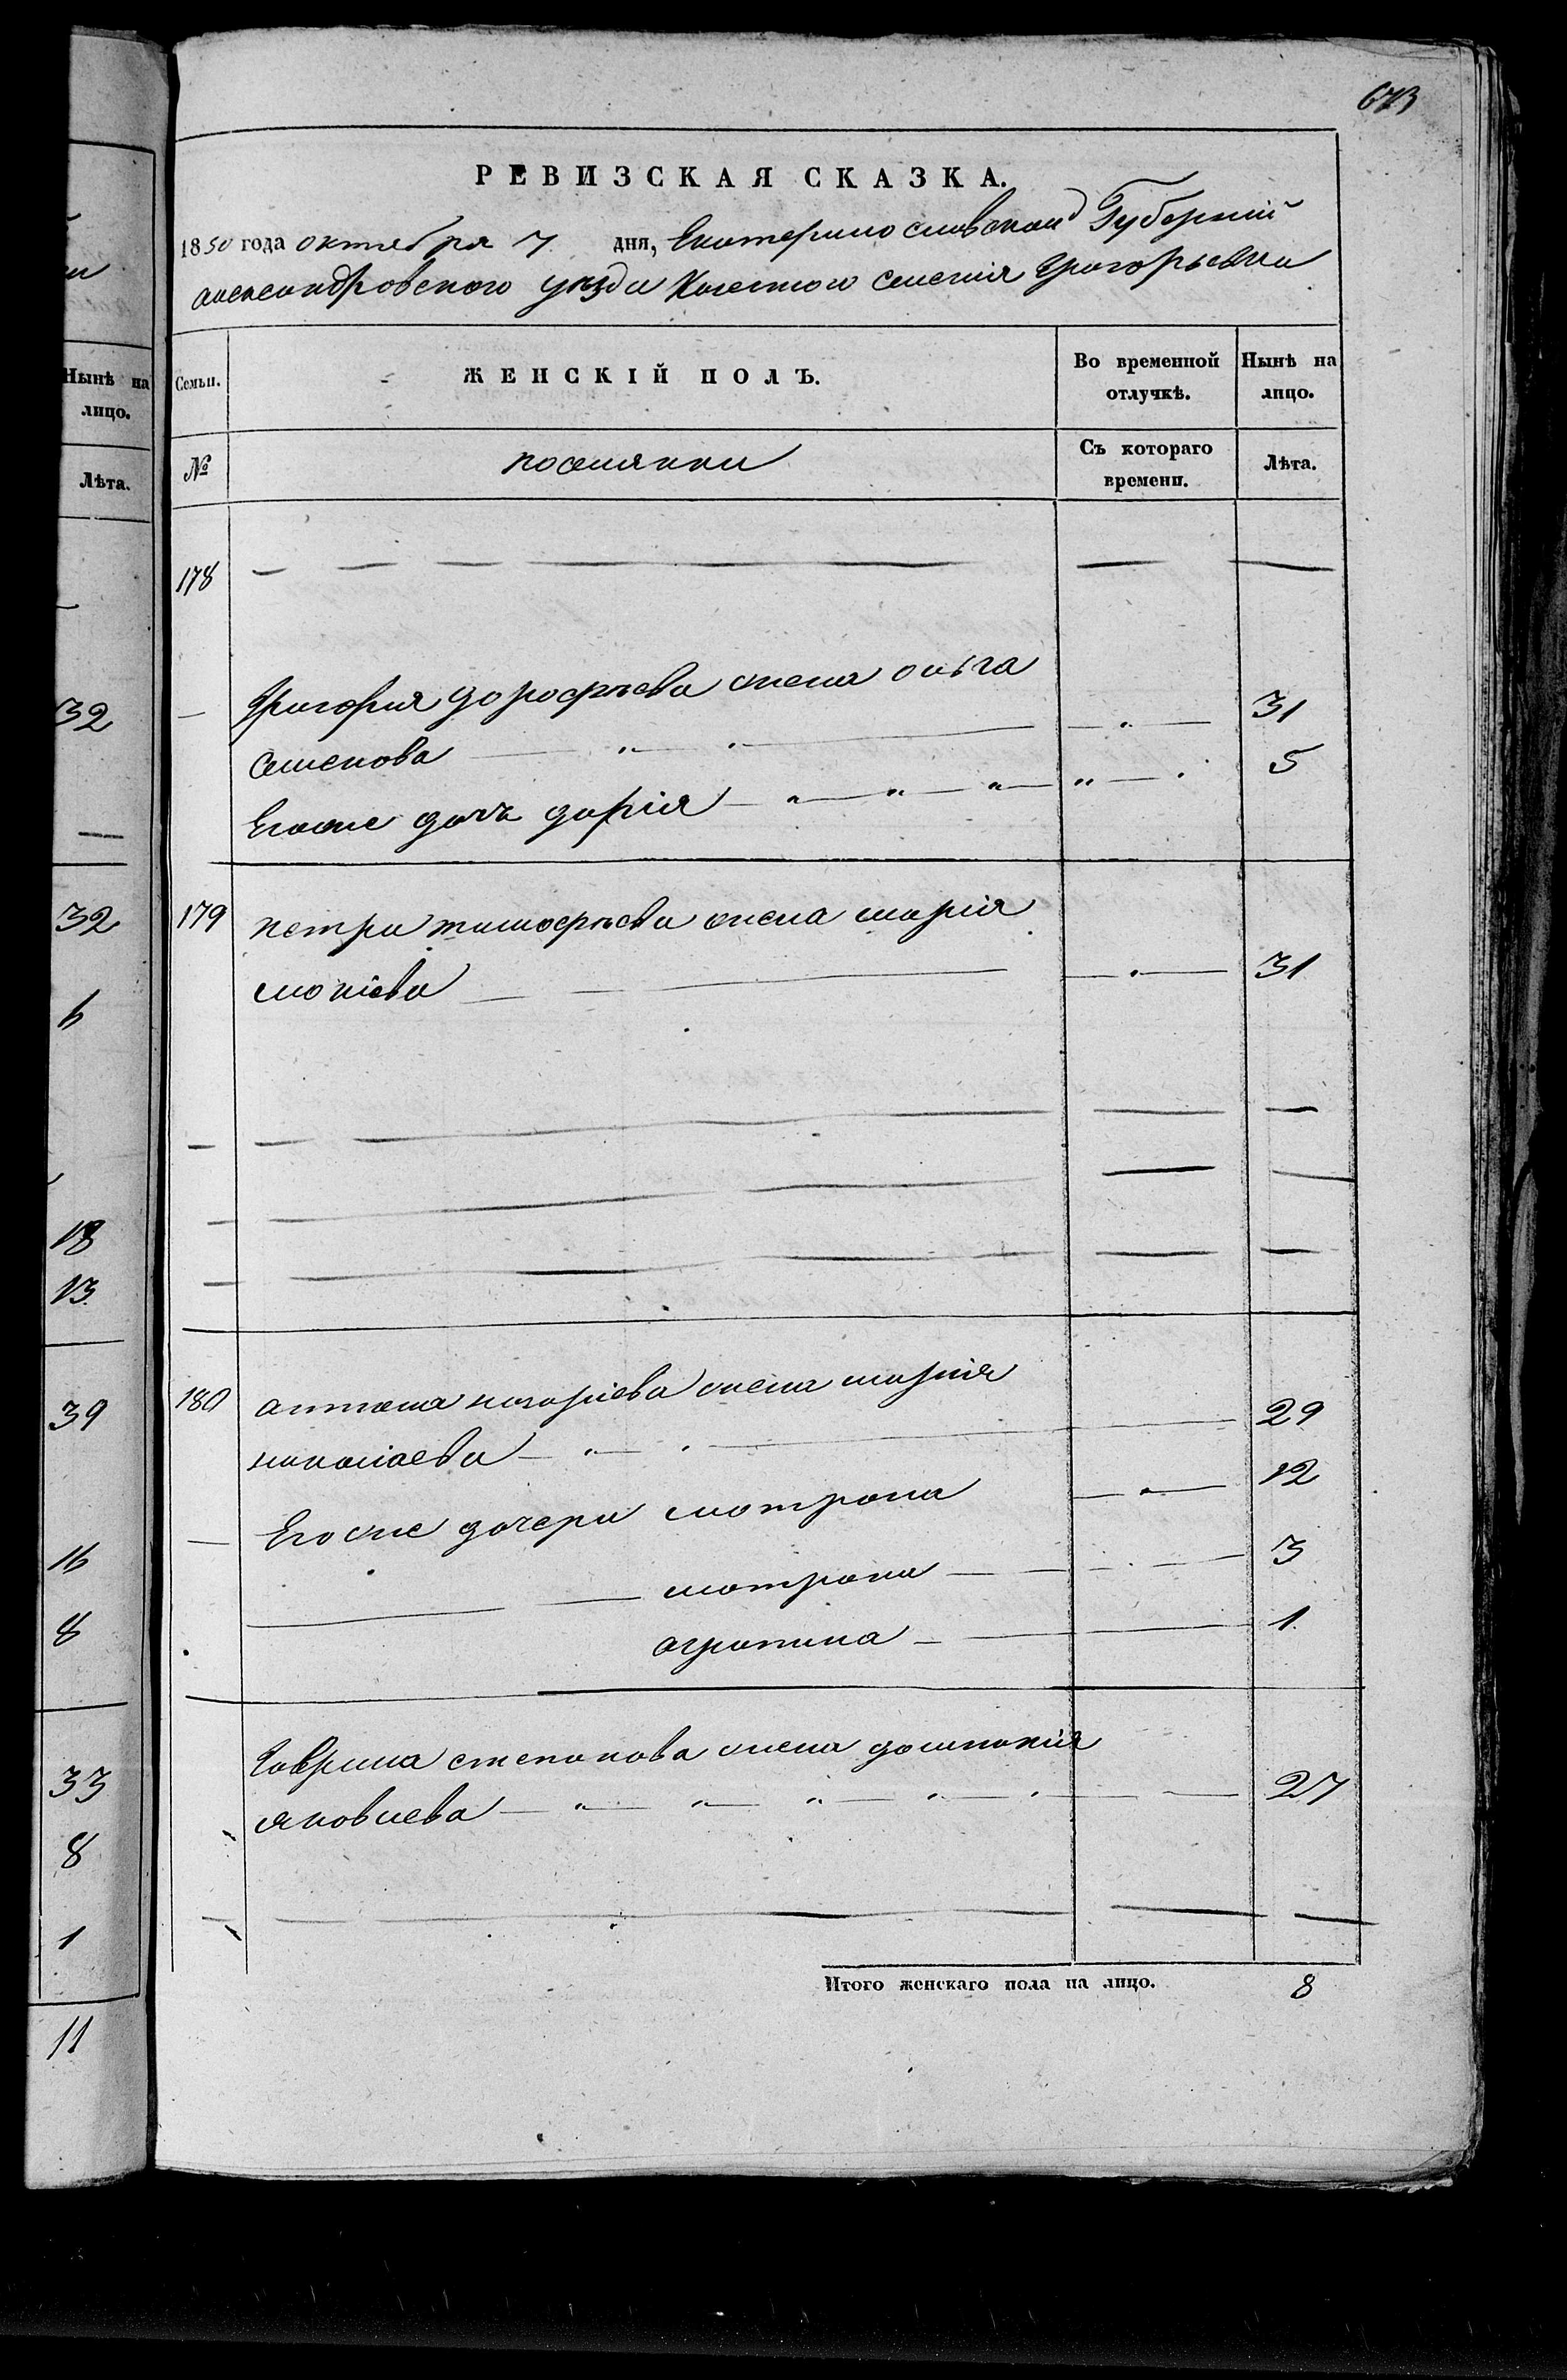 673
РЕВИЗСКАЯ СКАЗКА.
1850 года октября 7 дня, Екатеринославской Губерній
александровского уезда Казенного селенія Григорьевки
Нынѣ на лицо.
Лѣта.
32
32
6
18
13
39
16
8
33
8
1
11
Семьи. ЖЕНСКІЙ ПОЛЪ. Во временной отлучкѣ. Нынѣ на лицо.
№ поселянки Съ котораго времени. Лѣта.
178
Григория дорофеева жена ольга
семенова 31
Егоже дочь дарія 5
179 петра тимофеева жена марія
мокіева 31
180 антона назаріева жена марія
николаева 29
Егоже дочери мотрона 12
мотрона 3
агрипина 1
Гаврила степанова жена домникія
яковлева 27
Итого женскаго пола на лицо. 8